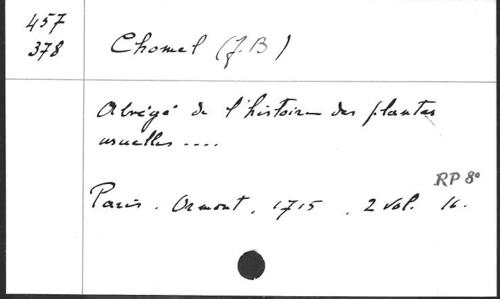 457
378
Chomel (J. B)
Abrégé de l'histoire des plantes
usuelles ....
RP 8°
Paris. Osmont, 1715, 2 vol. 16.